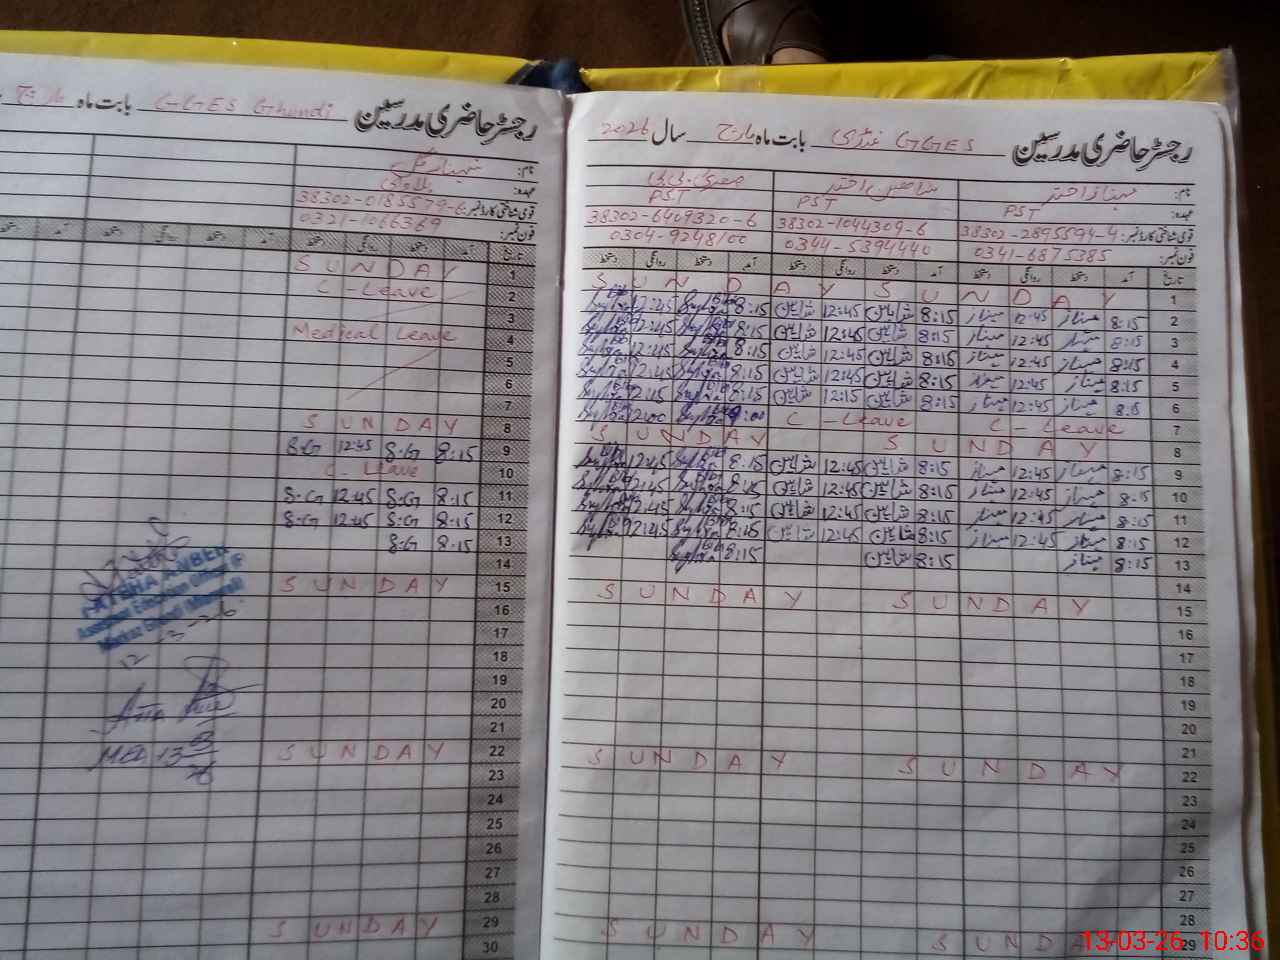 رجسٹر حاضری مدرسین GGES غنڈی بابت ماہ مارچ سال 2026
نام: مہناز اختر شاہین اختر صغریٰ بی بی
عہدہ: PST PST PST
قومی شناختی کارڈ نمبر: 38302-2895594-4 38302-1044309-6 38302-6409320-6
فون نمبر: 0341-6875385 0344-5394440 0304-9248100
تاریخ آمد دستخط روانگی دستخط آمد دستخط روانگی دستخط دستخط روانگی دستخط
1 SUNDAY SUNDAY
2 8:15 مہناز 12:45 مہناز 8:15 شاہین 12:45 شاہین 8:15 12:45
3 8:15 مہناز 12:45 مہناز 8:15 شاہین 12:45 شاہین 8:15 12:45
4 8:15 مہناز 12:45 مہناز 8:15 شاہین 12:45 شاہین 8:15 12:45
5 8:15 مہناز 12:45 مہناز 8:15 شاہین 12:45 شاہین 8:15 12:45
6 مہناز 12:45 مہناز 8:15 شاہین 12:15 شاہین 8:15
7 C-Leave C-Leave 9:00
8 SUNDAY SUNDAY
9 8:15 مہناز 12:45 مہناز 8:15 شاہین 12:45 شاہین 8:15 12:45
10 8:15 مہناز 12:45 مہناز 8:15 شاہین 12:45 شاہین 12:45
11 8:15 مہناز 12:45 مہناز 8:15 شاہین 12:45 شاہین 8:15 12:45
12 8:15 مہناز 12:45 مہناز 8:15 شاہین 12:45 شاہین 12:45
13 8:15 مہناز 8:15 شاہین 8:15
14
15 SUNDAY SUNDAY
16
17
18
19
20
21
22 SUNDAY SUNDAY
23
24
25
26
27
28
29 SUNDAY SUNDAY
رجسٹر حاضری مدرسین GGES Ghundi بابت ماہ مارچ
نام: شہناز گل
عہدہ:
قومی شناختی کارڈ نمبر: 38302-0185579-6
فون نمبر: 0321-1066369
تاریخ آمد دستخط روانگی دستخط آمد دستخط روانگی دستخط آمد دستخط
1 SUNDAY
2 C-Leave
3
4 Medical Leave
5
6
7
8 SUNDAY
9 8:15 S.G 12:45 S.G
10 C-Leave
11 8:15 S.G 12:45 S.G
12 8:15 S.G 12:45 S.G
13 8:15 S.G
14
15 SUNDAY
16
17
18
19
20
21
22 SUNDAY
23
24
25
26
27
28
29 SUNDAY
30
Assistant Education Officer
12-3-26
MEA 13
13-03-26 10:36